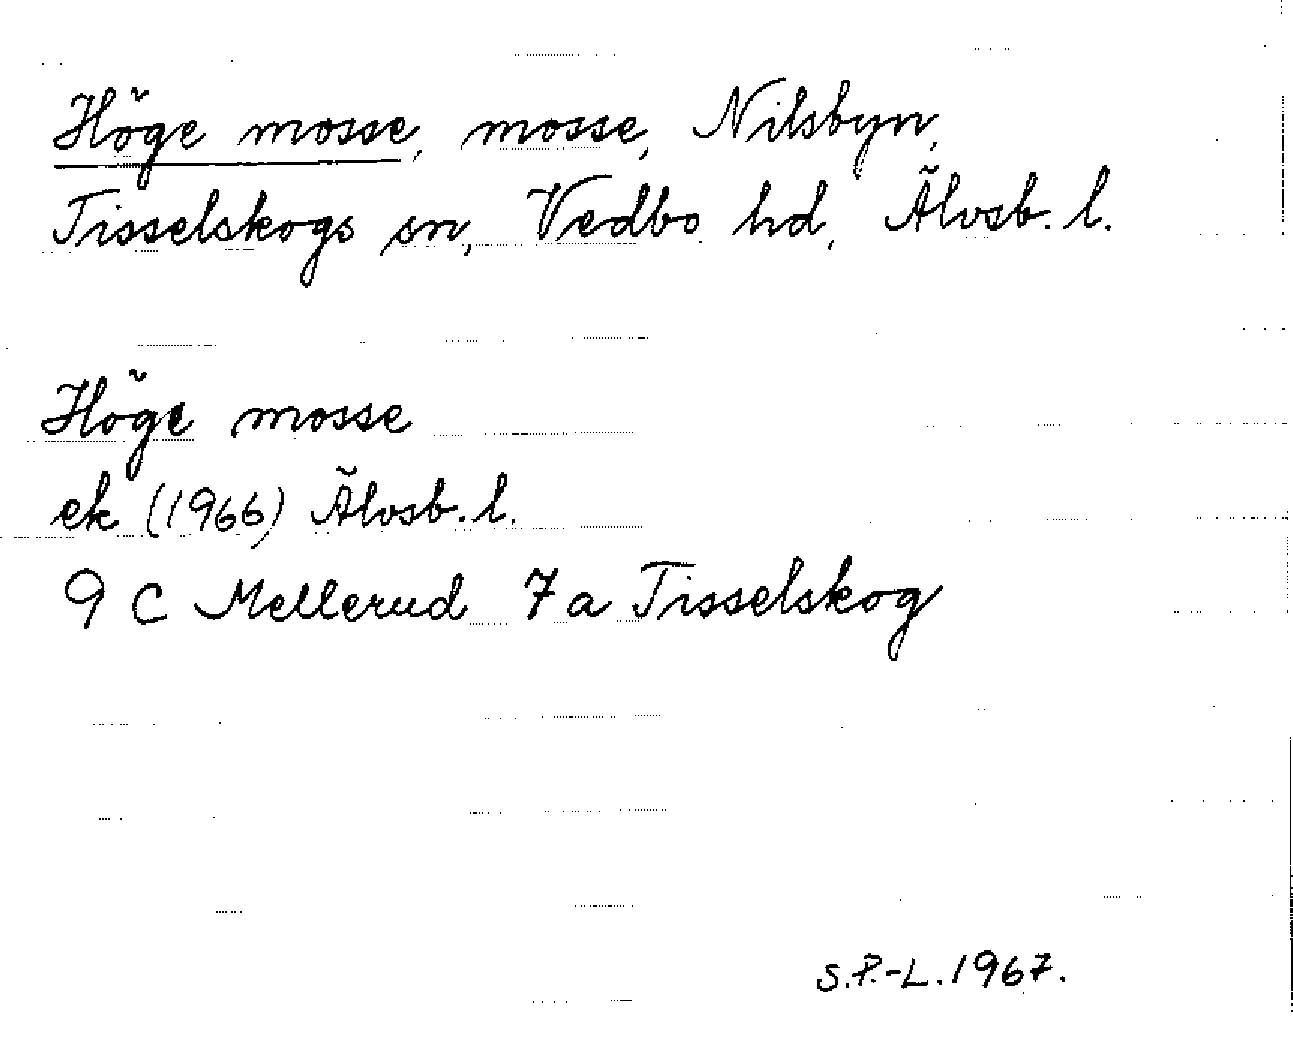 Höge mosse, mosse, Nilsbyn,
Tisselskogs sn, Vedbo hd, Älvsb. l.
Höge mosse
ek (1966) Älvsb. l.
9 C Mellerud 7 a Tisselskog
S.P.-L. 1967.